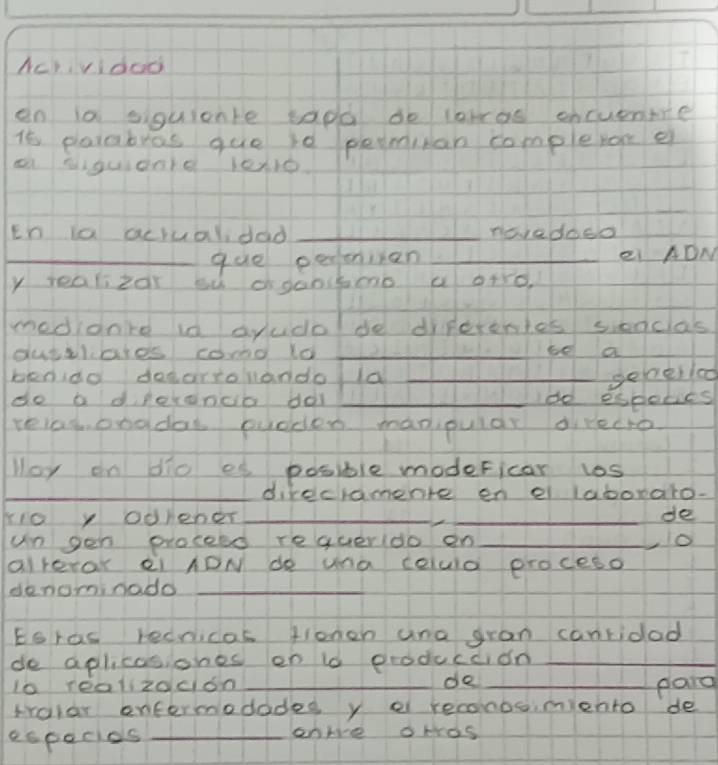 Actividad
en la siguiente sapa de letras encuentre
15 palabras que te permitan completar el
el siguiente texto
En la actualidad ________ novedoso
________ que permiten ________ el ADN
y realizar su organismo a otro.
mediante la ayuda de diferentes siencias
ausiliares como la ________ se a
benido desarrollando la ________ generica
de a diferencia del ________ de especies
relasionadas pueden manipular directo
Hoy en dia es posible modeficar los
________ directamente en el laborato-
rio y odtener ________, ________ de
un gen proceso requerido en ________, o
alterar el ADN de una celula proceso
denominado ________
Estas tecnicas tienen una gran cantidad
de aplicasiones en la producción ________
la realización ________ de ________ para
tratar enfermedades y el reconosimiento de
especies ________ entre otras